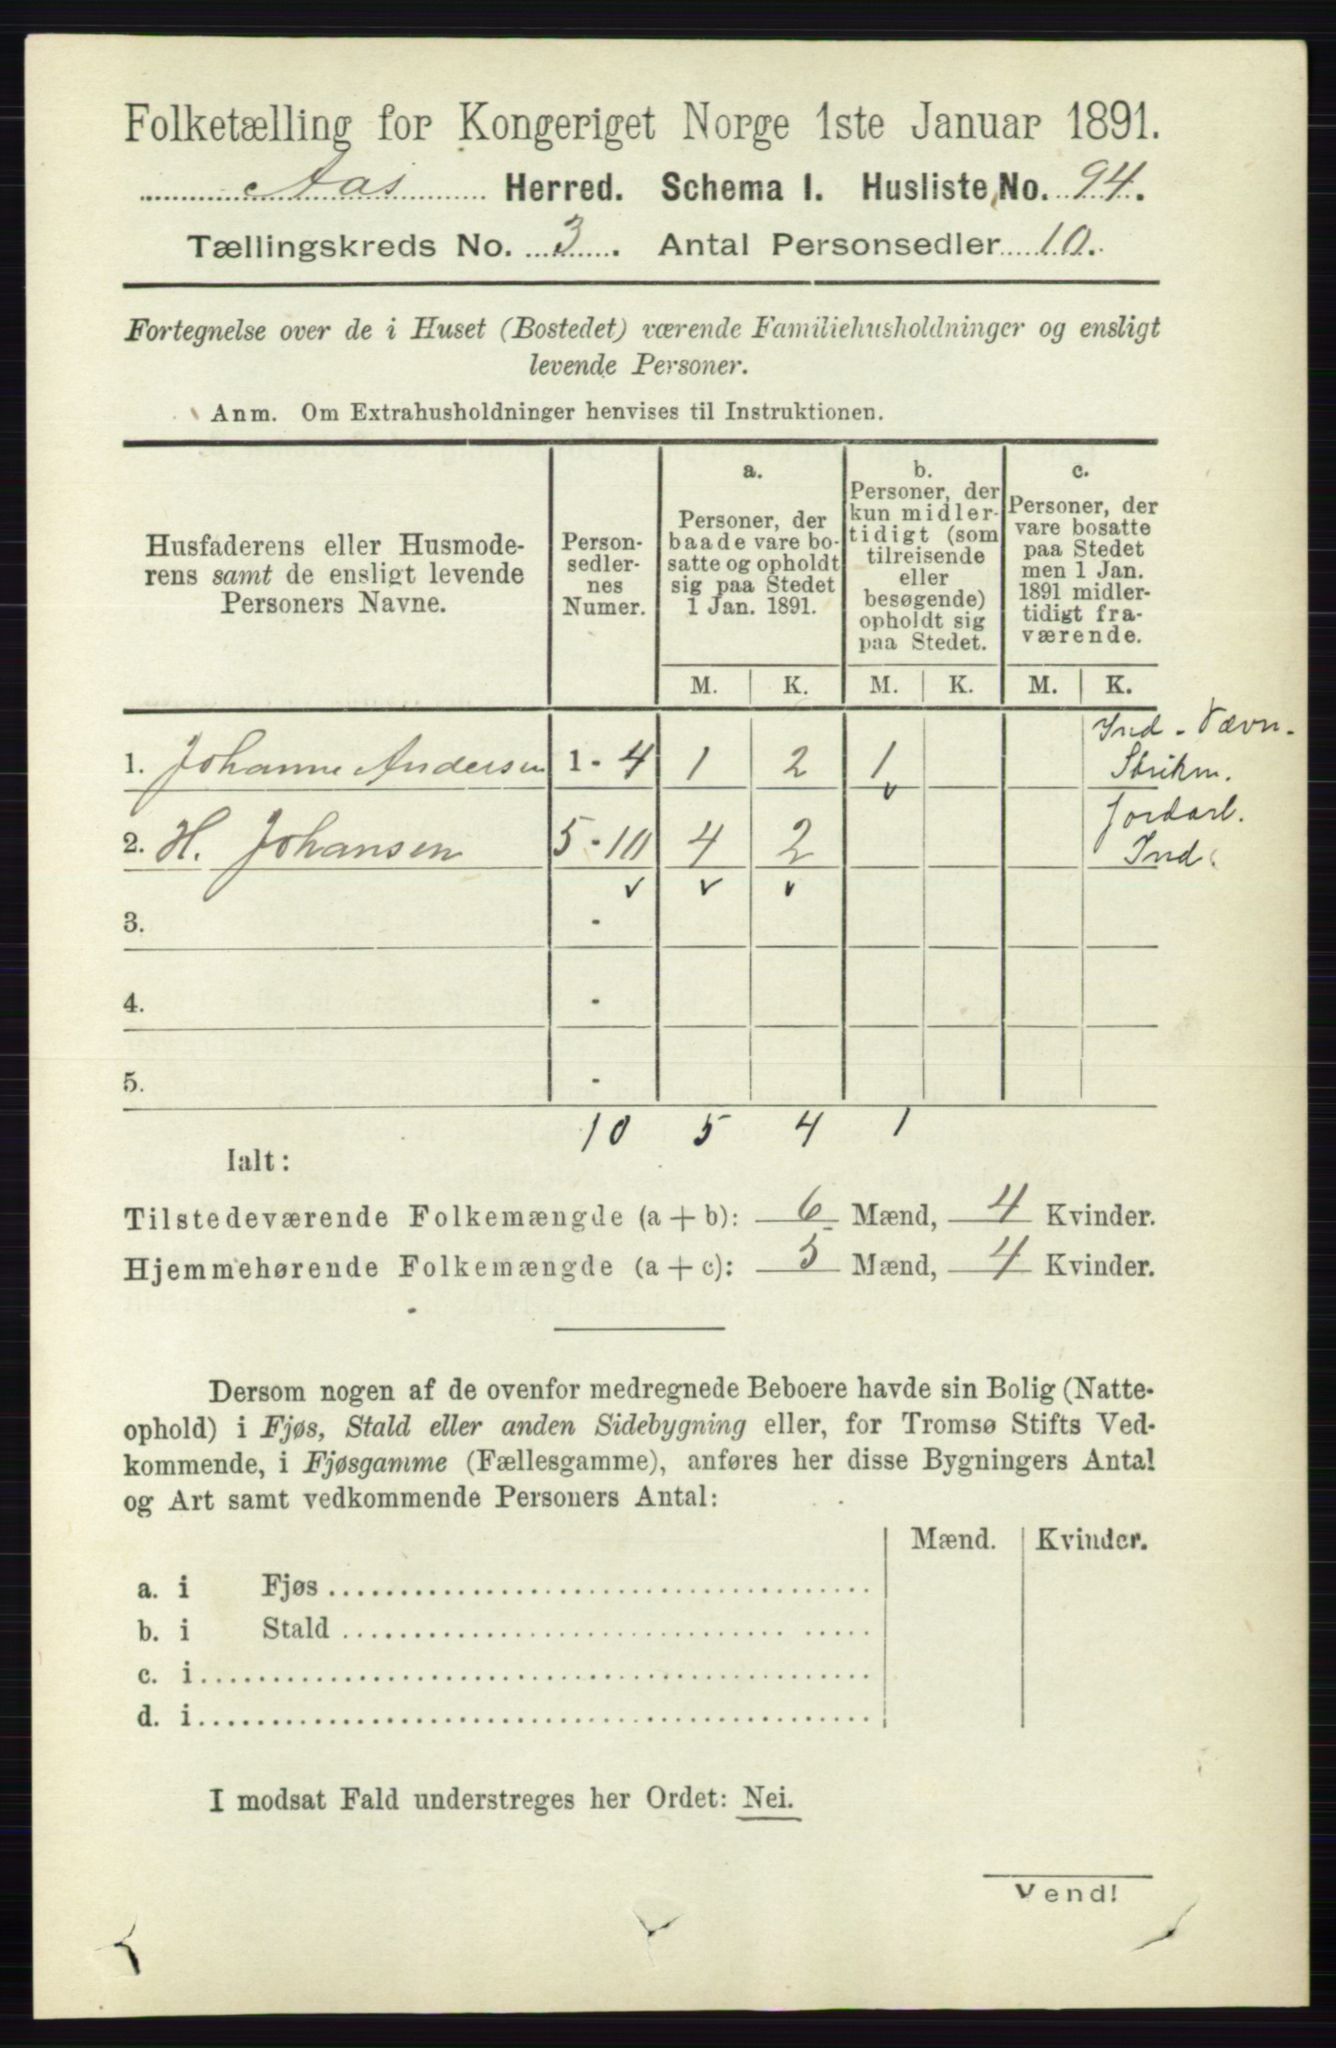 Folketælling for Kongeriget Norge 1ste Januar 1891.
Aas Herred. Schema 1. Husliste No. 94.
Tællingskreds No. 3. Antal Personsedler 10.
Fortegnelse over de i Huset (Bostedet) værende Familiehusholdninger og ensligt
levende Personer.
Anm. Om Extrahusholdninger henvises til Instruktionen.
Husfaderens eller Husmode-
rens samt de ensligt levende
Personers Navne.
Person-
sedler-
nes
Numer.
a.
Personer, der
baade vare bo-
satte og opholdt
sig paa Stedet
1 Jan. 1891.
b.
Personer, der
kun midler-
tidigt (som
tilreisende
eller
besøgende)
opholdt sig
paa Stedet.
c.
Personer, der
vare bosatte
paa Stedet
men 1 Jan.
1891 midler-
tidigt fra-
værende.
M. K. M. K. M. K.
Ind - Vævn.
1. Johanne Andersen 1 - 4 1 2 1 Strikn.
Jordarb.
2. H. Johansen 5 - 10 4 2 Ind
3. -
4. -
5. -
10 5 4 1
Ialt:
Tilstedeværende Folkemængde (a + b): 6 Mænd, 4 Kvinder.
Hjemmehørende Folkemængde (a + c): 5 Mænd, 4 Kvinder.
Dersom nogen af de ovenfor medregnede Beboere havde sin Bolig (Natte-
ophold) i Fjøs, Stald eller anden Sidebygning eller, for Tromsø Stifts Ved-
kommende, i Fjøsgamme (Fællesgamme), anføres her disse Bygningers Antal
og Art samt vedkommende Personers Antal:
Mænd. Kvinder.
a. i Fjøs
b. i Stald
c. i
d. i
I modsat Fald understreges her Ordet: Nei.
Vend!